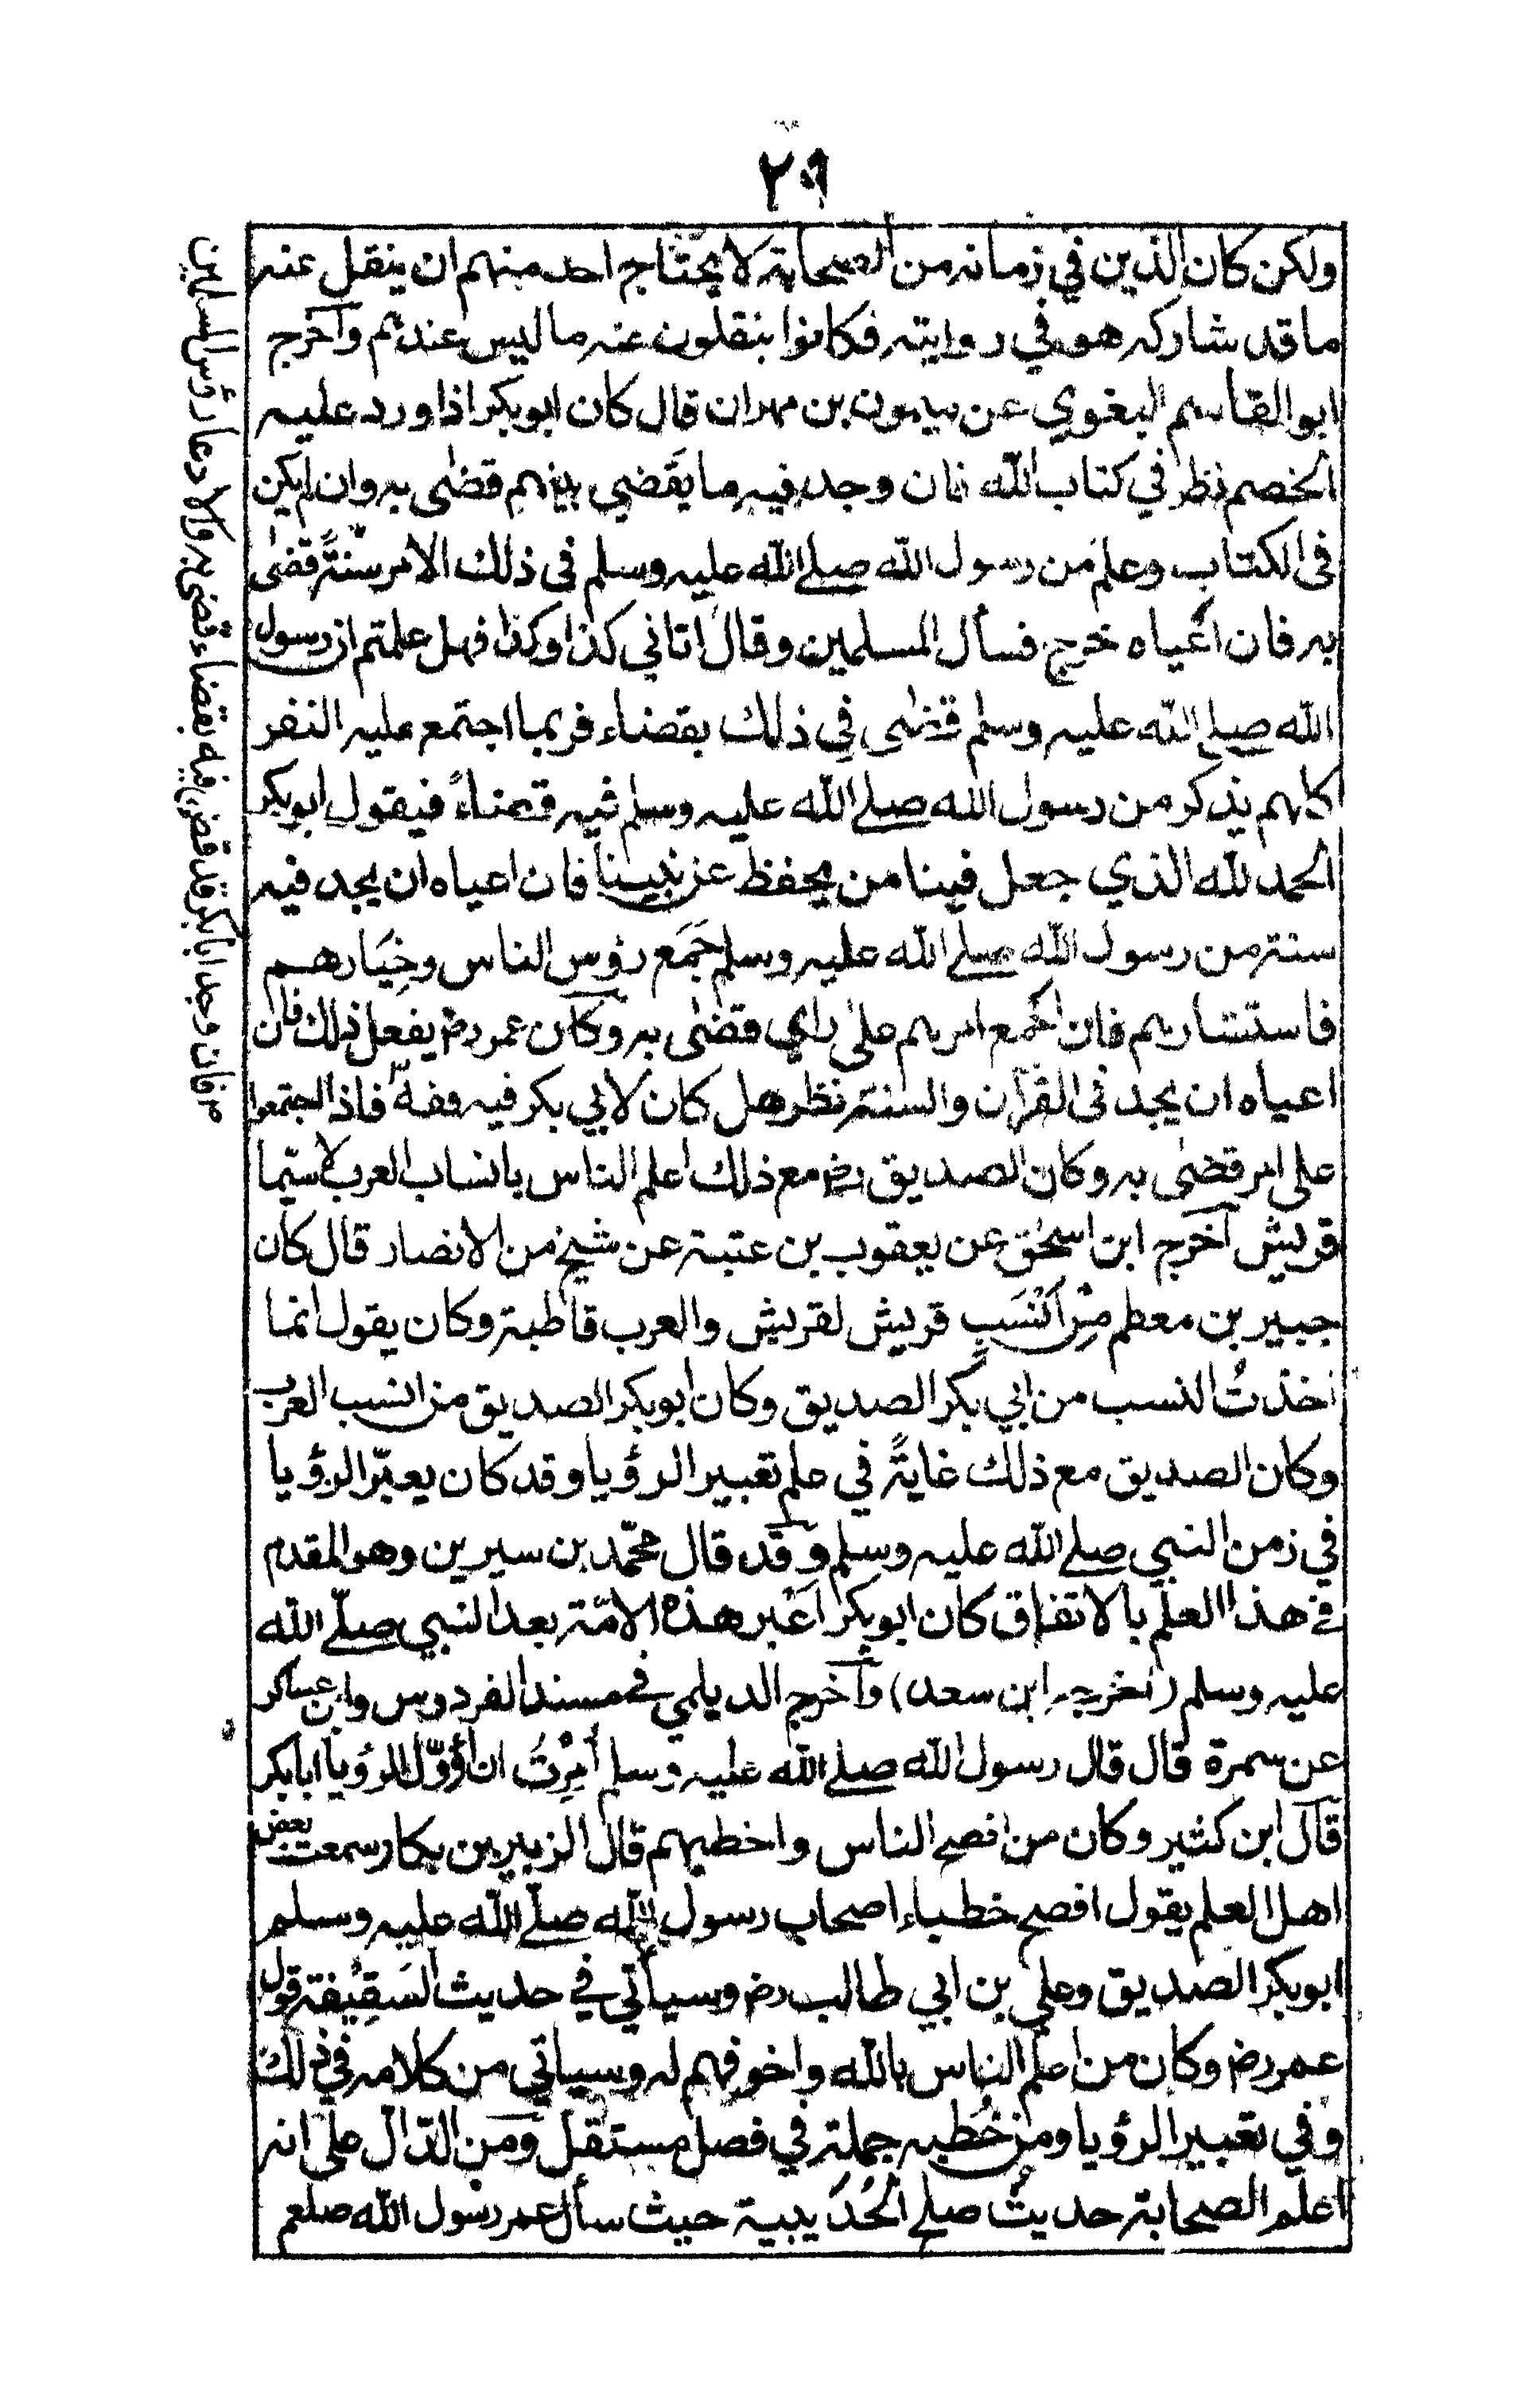 ٢٩
ولكن كان الذين في زمانه من الصحابة لا يحتاج احد منهم ان ينقل عنه
ما قد شاركه هو في روايته فكانوا ينقلون عنه ما ليس عندهم وآخرج
ابو القاسم البغوي عن ميمون بن مهران قال كان ابو بكر اذا ورد عليه
الخصم نظر في كتاب الله فان وجد فيه ما يَقضي بينهم قضٰى به وان لم يكن
فى الكتاب وعلم من رسول الله صلے الله عليه وسلم فى ذلك الامر سنّةً قضٰى
به فان اَعْياه خرج فسأل المسلمين وقال اتاني كذا وكذا فهل علمتم ان رسول
الله صلے الله عليه وسلم قضٰى في ذلك بقضاء فربما اجتمع عليه النفر
كلهم يذكر من رسول الله صلے الله عليه وسلم فيه قضاءً فيقول ابو بكر
الحمد لله الذي جعل فينا من يحفظ عن نبينا فان اعياه ان يجد فيه
سنة من رسول الله صلے الله عليه وسلم جَمَع رؤس الناس وخِيَارهم
فاستشارهم فان اجْمع امرهم على راي قضٰى به وكان عمر رض يفعل ذلك فان
اعياه ان يجد فى القرآن والسنة نظر هل كان لابي بكر فيه
على امر قضٰى به وكان الصديق رض مع ذلك اعلم الناس بانساب العرب لاسيّما
قريش آخرج ابن اسحٰق عن يعقوب بن عتبة عن شيخ من الانصار قال كان
جبير بن مطعم مِن اَنْسَبِ قريش لقريش والعرب قاطبة وكان يقول انما
اخذتُ النسب من ابي بكر الصديق وكان ابو بكر الصديق من انسب العرب
وكان الصديق مع ذلك غايةً في علم تعبير الرؤيا وقد كان يعبّر الرؤيا
في زمن النبي صلے الله عليه وسلم وقد قال محمّد بن سيرين وهو المقدم
في هذا العلم بالاتفاق كان ابو بكر اَعْبر هذه الامّة بعد النبي صلّے الله
عليه وسلم (اخرجه ابن سعد) وآخرج الديلمي في مسند الفردوس وابن عساكر
عن سمرة قال قال رسول الله صلے الله عليه وسلم اُمِرْتُ ان اُؤوّل الرؤيا ابا بكر
قال ابن كثير وكان من افصح الناس واخطبهم قال الزبير بن بكار سمعت بعض
اهل العلم يقول افصح خطباء اصحاب رسول الله صلّے الله عليه وسلم
ابو بكر الصديق وعلي بن ابي طالب رض وسيأتي في حديث السَقِيْفة قول
عمر رض وكان من اعلم الناس بالله واخوفهم له وسياتي من كلامه في ذلك
وفي تعبير الرؤيا ومن خُطَبه جملة في فصل مستقل ومن الدّال على انه
اعلم الصحابة حديثُ صلح الحُدَيبية حيث سأل عمر رسول الله صلعم
فان وجد ابا بكر قد قضى فيه بقضاء قضى به والا دعا رؤس المسلمين